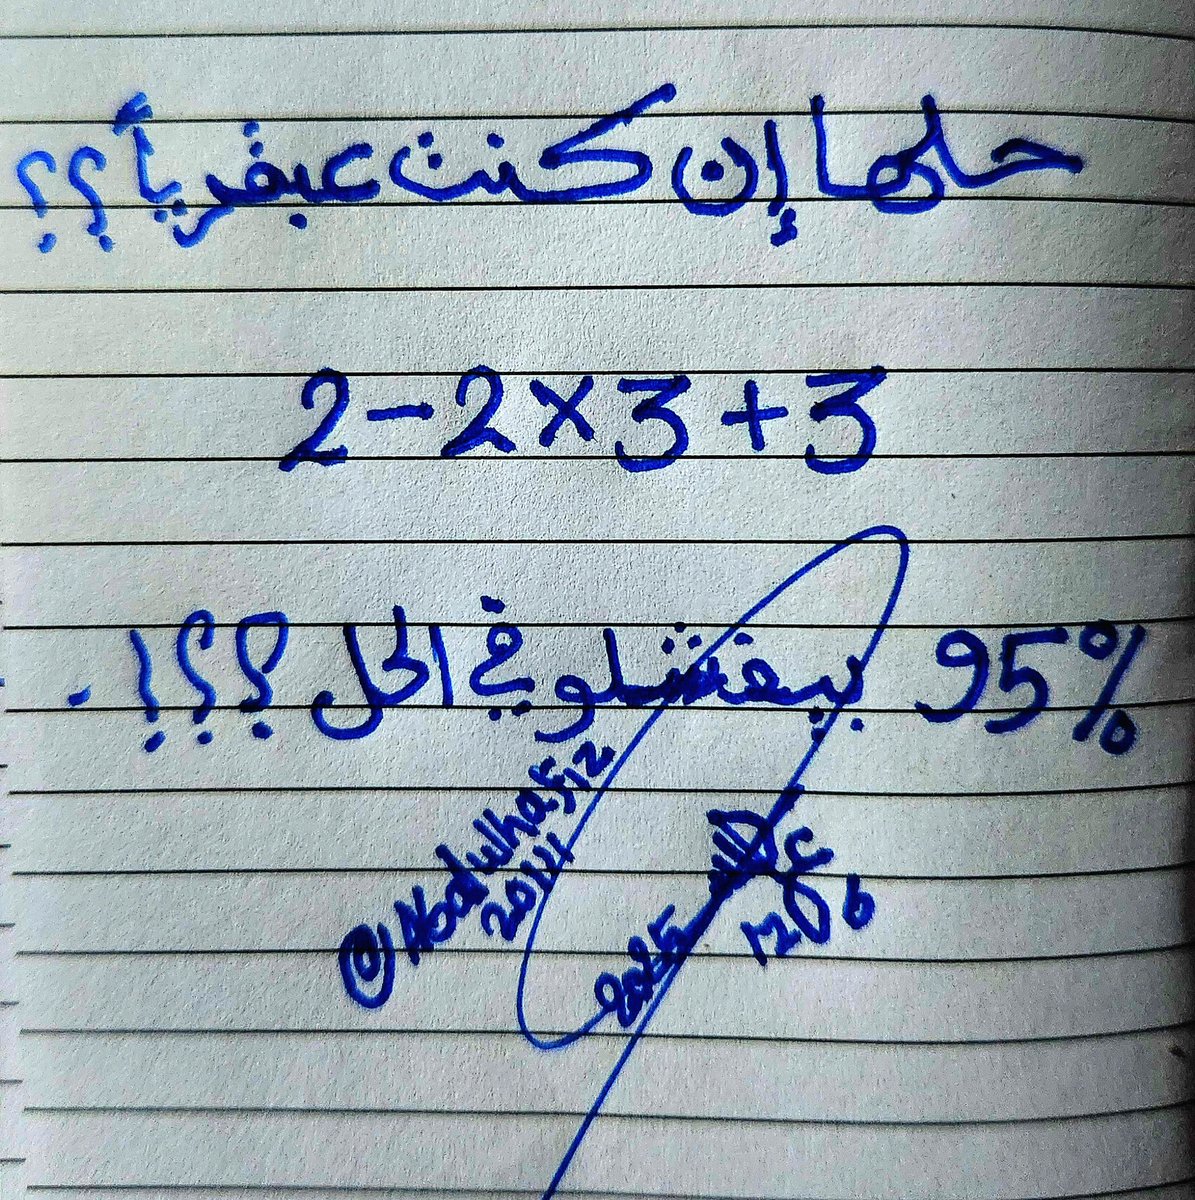 حلها إن كنت عبقرياً ؟؟
2-2×3+3
95% بيفشلو في الحل ؟؟!.
@Abdulhafiz
2014
2025